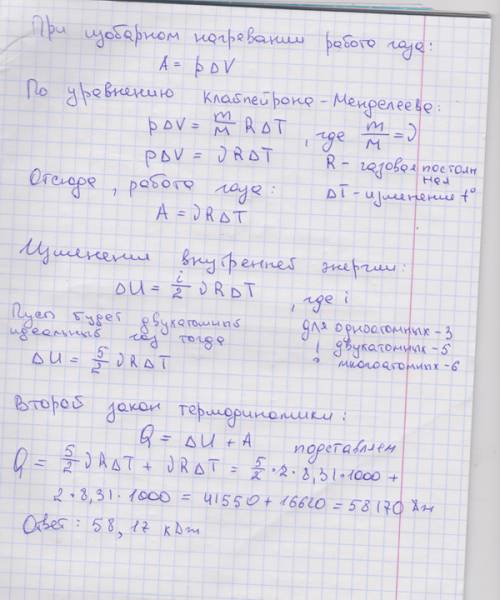 При изобарном нагревании работа газа:
A = pΔV
По уравнению Клапейрона-Менделеева:
pΔV = m/M RΔT , где m/M = ν
pΔV = νRΔT
R - газовая постоян
ная
Отсюда, работа газа:
ΔT - изменение t°
A = νRΔT
Изменения внутренней энергии:
ΔU = i/2 νRΔT , где i
Пусть будет двухатомный
идеальный газ тогда
для одноатомных - 3
двухатомных - 5
многоатомных - 6
ΔU = 5/2 νRΔT
Второй закон термодинамики:
Q = ΔU + A
подставляем
Q = 5/2 νRΔT + νRΔT = 5/2 · 2 · 8,31 · 1000 +
2 · 8,31 · 1000 = 41550 + 16620 = 58170 Дж
Ответ: 58,17 кДж